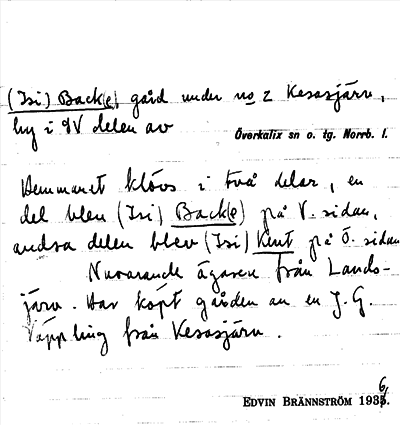 (Isi) Back(e), gård under no 2 Kesasjärv,
by i NV delen av
Överkalix sn o. tg. Norrb. l.
Hemmanet klövs i två delar, en
del blev (Isi) Back(e) på V. sidan,
andra delen blev (Isi) Kent på Ö. sidan
Nuvarande ägaren från Lands-
järv. Har köpt gården av en J. G.
Täppling från Kesasjärv.
EDVIN BRÄNNSTRÖM 1936.